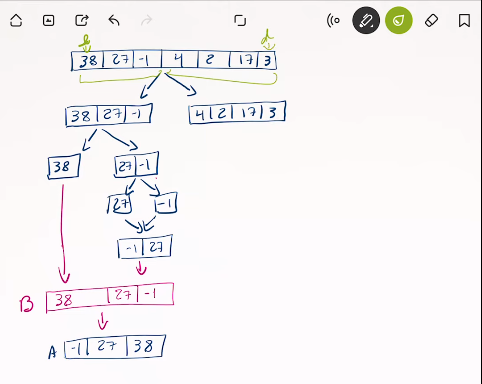 f d
38 27 -1 4 2 17 3
38 27 -1 4 2 17 3
38 27 -1
27 -1
-1 27
B 38 27 -1
A -1 27 38